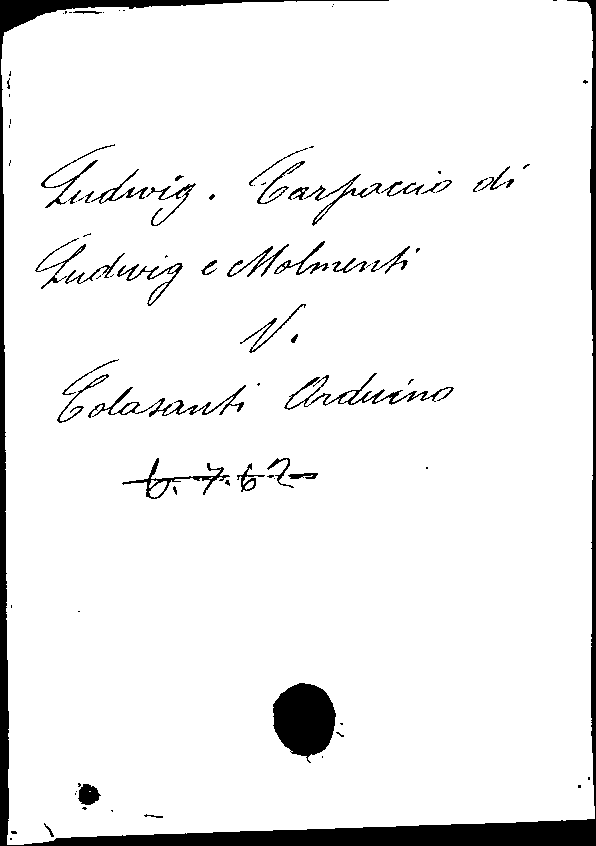 Ludwig. Carpaccio di
Ludwig e Molmenti
V.
Colasanti Arduino
b. 7. 62